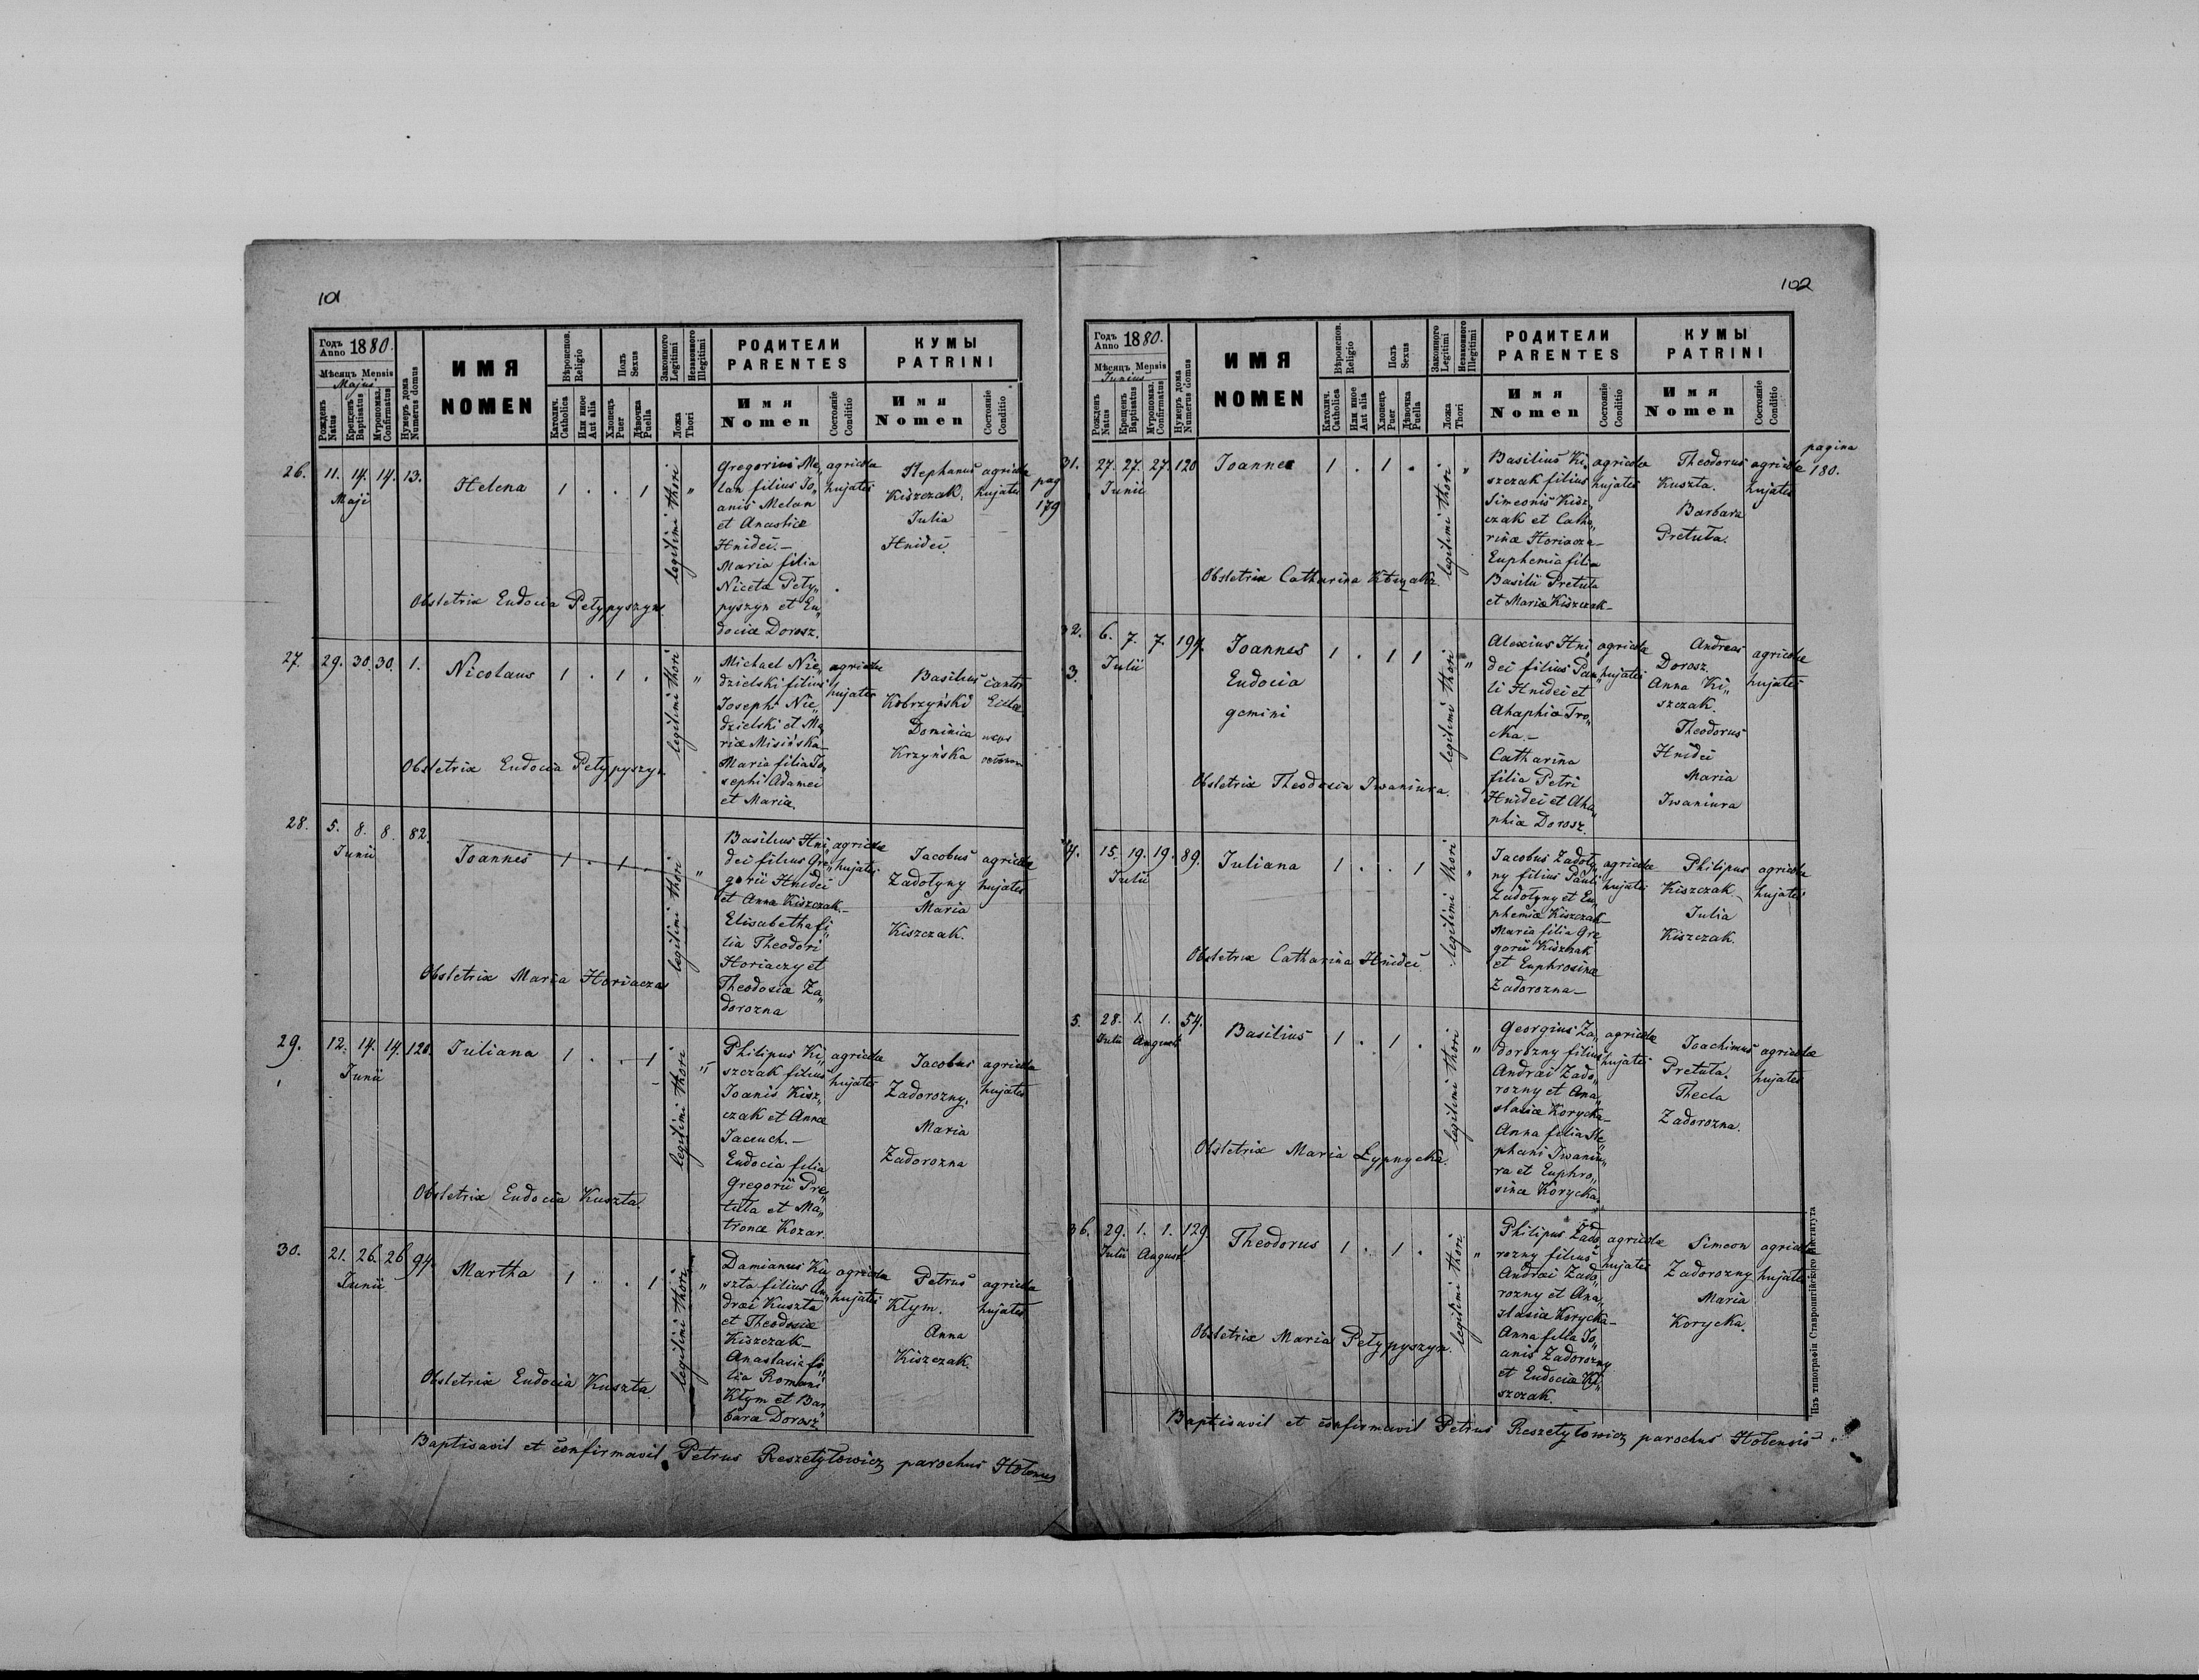 101
Годъ Anno 1880.
Мѣсяцъ Mensis
Majus
Рожденъ Natus
Крещенъ Baptisatus
Мѵропомаз. Confirmatus
Нумеръ дома Numerus domus
ИМЯ
NOMEN
Вѣроиспов. Religio
Католич. Catholica
Или иное Aut alia
Полъ Sexus
Хлопецъ Puer
Дѣвочка Puella
Законного Legitimi
Незаконного Illegitimi
Ложа Thori
РОДИТЕЛИ
PARENTES
Имя
Nomen
Состояніе Conditio
КУМЫ
PATRINI
Имя
Nomen
Состояніе Conditio
26. 11. 14. 14. 13.
Maji
Helena
1 . . 1
legitimi thori "
Gregorius Me„
lan filius Jo„
anis Melan
et Anastiæ
Hnidei.—
Maria filia
Nicetæ Pety„
pyszyn et Eu„
dociæ Dorosz.
agricola
hujates
Stephanus
Kiszczak.
Julia
Hnidei
agricola
hujates
pag
179
Obstetrix Eudocia Pełypyszyn
27. 29. 30. 30. 1.
Nicolaus
1 . 1 .
legitimi thori "
Michael Nie„
dzielski filius
Josephi Nie„
dzielski et Ma„
riæ Misińska—
Maria filia Jo„
sephi Adamei
et Maria.
agricola
hujates
Basilius
Kobrzyński
Dominica
Krzyńska
cantor
Obstetrix Eudocia Pełypyszyn
28. 5. 8. 8. 82.
Junii
Joannes
1 . 1
legitimi thori "
Basilius Hni„
dei filius Gre„
gorii Hnidei
et Anna Kiszczak.—
Elisabetha fi„
lia Theodori
Horiaczy et
Theodosiæ Za„
dorozna
agricola
hujates
Jacobus
Zadotyny
Maria
Kiszczak.
agricola
hujates
Obstetrix Maria Horiacza
29. 12. 14. 14. 120.
Junii
Juliana
1 . . 1
legitimi thori "
Philipus Ki„
szczak filius
Joanis Kisz„
czak et Annæ
Jaceuch.—
Eudocia filia
Gregorii Pre„
tuła et Ma„
tronæ Kozar.
agricola
hujates
Jacobus
Zadorozny.
Maria
Zadorozna
agricola
hujates
Obstetrix Eudocia Kuszta.
30. 21. 26. 26. 94.
Junii
Martha
1 . . 1
legitimi thori "
Damianus Ku„
szta filius An„
dræi Kuszta
et Theodosiæ
Kiszczak—
Anastasia fi„
lia Romani
Kłym et Bar„
baræ Dorosz
agricola
hujates
Petrus
Kłym.
Anna
Kiszczak.
agricola
hujates
Obstetrix Eudocia Kuszta.
Baptisavit et confirmavit Petrus Reszetyłowicz parochus
102
Годъ Anno 1880.
Мѣсяцъ Mensis
Junius
Рожденъ Natus
Крещенъ Baptisatus
Мѵропомаз. Confirmatus
Нумеръ дома Numerus domus
ИМЯ
NOMEN
Вѣроиспов. Religio
Католич. Catholica
Или иное Aut alia
Полъ Sexus
Хлопецъ Puer
Дѣвочка Puella
Законного Legitimi
Незаконного Illegitimi
Ложа Thori
РОДИТЕЛИ
PARENTES
Имя
Nomen
Состояніе Conditio
КУМЫ
PATRINI
Имя
Nomen
Состояніе Conditio
31. 27. 27. 27. 120
Junii
Joannes
1 . 1 .
legitimi thori "
Basilius Ki„
szczak filius
Simeonis Kisz„
czak et Catha„
rinæ Horiacza—
Euphemia filia
Basilii Pretuła
et Mariæ Kiszczak—
agricola
hujates
Theodorus
Kuszta.
Barbara
Pretuła.
agricola
hujates
pagina
180.
Obstetrix Catharina
32. 6. 7. 7. 194.
3. Julii
Joannes
Eudocia
gemini
1 . 1 1
legitimi thori "
Alexius Hni„
dei filius Pau„
li Hnidei et
Ahaphiæ Tro„
cha.—
Catharina
filia Petri
Hnidei et Aha„
phiæ Dorosz.
agricola
hujates
Andreas
Dorosz.
Anna Ki„
szczak.
Theodorus
Hnidei
Maria
Iwaniura
agricolæ
hujates
Obstetrix Theodosia Iwaniura.
4. 15. 19. 19. 89.
Julii
Juliana
1 . . 1
legitimi thori "
Jacobus Zadoty„
ny filius Pauli
Zadotyny et Eu„
phemiæ Kiszczak—
Maria filia Gre„
gorii Kiszczak
et Euphrosinæ
Zadorozna—
agricola
hujates
Philipus
Kiszczak
Julia
Kiszczak.
agricola
hujates
Obstetrix Catharina Hnidei
5. 28. 1. 1. 54.
Julii August
Basilius
1 . 1 .
legitimi thori "
Georgius Za„
dorozny filius
Andræi Zado„
rozny et Ana„
stasiæ Korycka—
Anna filia Ste„
phani Iwaniu„
ra et Euphro„
sinæ Korycka.
agricola
hujates
Joachimus
Pretuła.
Thecla
Zadorozna.
agricolæ
hujates
Obstetrix Maria Łypnycka.
36. 29. 1. 1. 129.
Julii August
Theodorus
1 . 1 .
legitimi thori "
Philipus Zado„
rozny filius
Andræi Zado„
rozny et Ana„
stasiæ Korycka—
Anna filia Jo„
anis Zadorozny
et Eudociæ Ki„
szczak.
agricola
hujates
Simeon
Zadorozny
Maria
Korycka.
agricola
hujates
Obstetrix Maria Pełypyszyn.
Baptisavit et confirmavit Petrus Reszetyłowicz parochus Hołensis
Изъ типографіи Ставропигійского Института